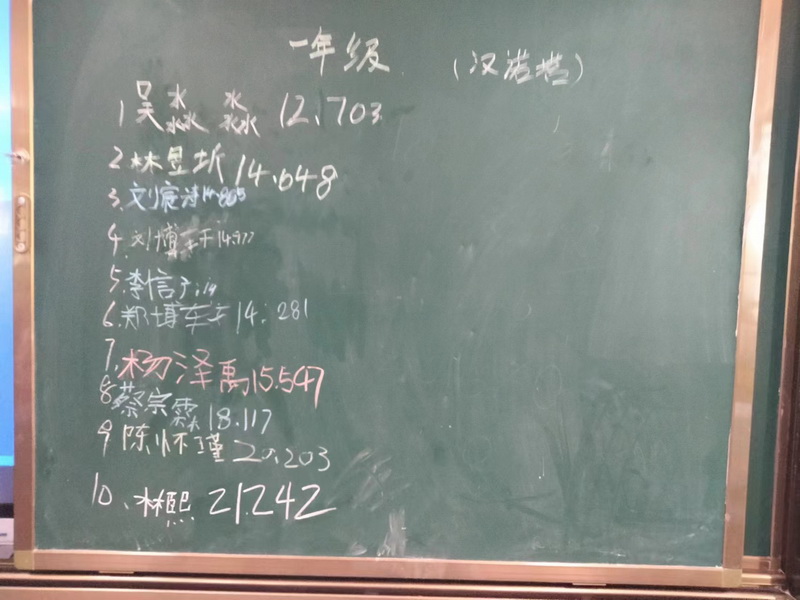 一年级 (汉诺塔)
1 吴淼淼 12.703
2 林昱圻 14.648
3. 刘宸 14.865
4. 刘博 14.977
5. 李信
6. 郑博 14.281
7. 杨泽禹 15.547
8 蔡宗霖 18.117
9 陈怀瑾 20.203
10、林熙 21.242